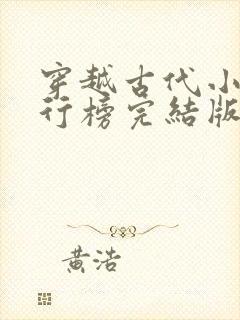 穿越古代小
行榜完结版
黄浩